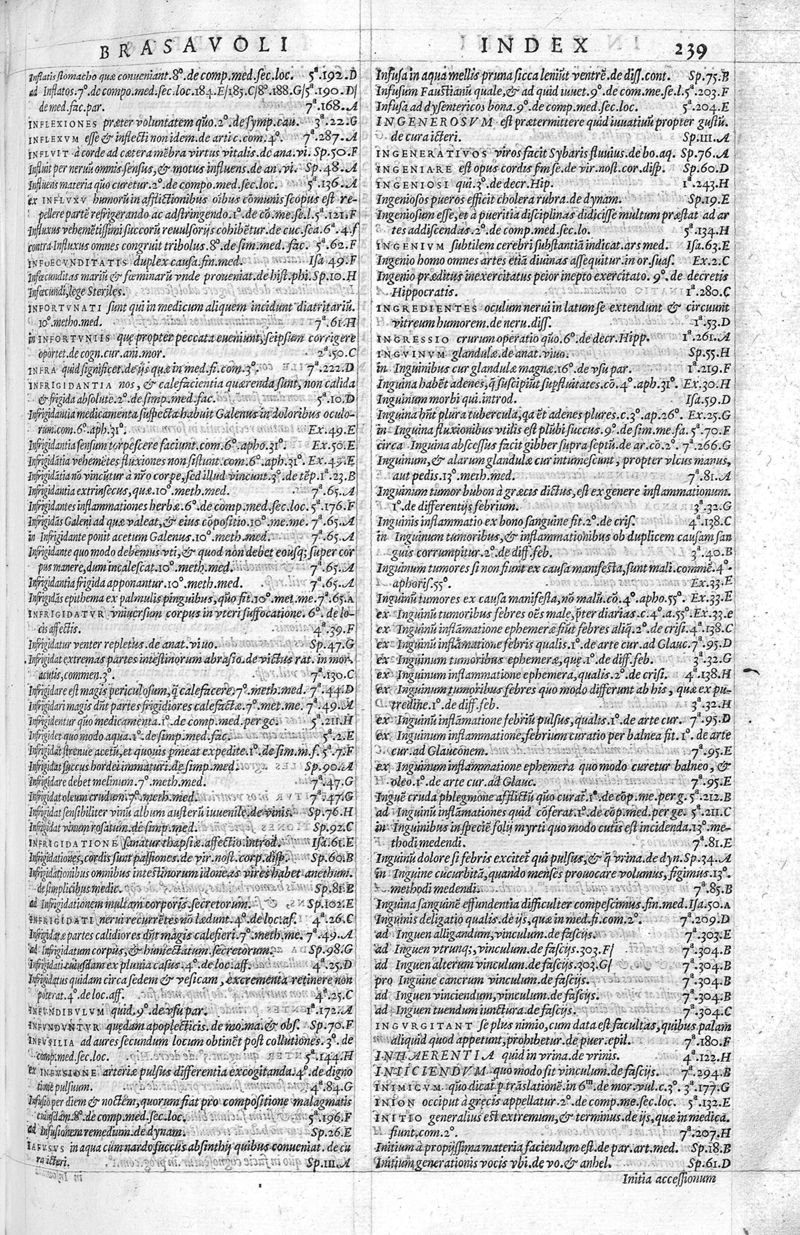 BRASAVOLI
Inflatis stomacho quæ conueniant. 8°. de comp. med. sec. loc. 5ª.192.D
ad Inflatos. 7°. de compo. med. sec. loc. 184. E/185. C/8°.188. G/5ª.190. D/
de med. fac. par. 7ª.168.A
INFLEXIONES præter voluntatem quo. 2°. de symp. cau. 3ª.22.G
INFLEXVM esse & inflecti non idem. de artic. com. 4°. 7ª.287.A
INFLVIT à corde ad cætera mēbra virtus vitalis. de ana. vi. Sp.50.F
Influit per neruū omnis sensus, & motus influens. de an. vi. Sp.48.A
Influens materia quo curetur. 2°. de compo med. sec. loc. 5ª.136.A
ex INFLVXV humorū in afflictionibus oibus cōmunis scopus est re-
pellere partē refrigerando ac adstringendo. 1°. de cō. me. se. l. 5ª.121.F
Influxus vehemētissimi succorū reuulsorijs cohibētur. de cuc. sca. 6ª.4.f
contra Influxus omnes congruit tribolus. 8°. de sim. med. fac. 5ª.62.F
INFOECVNDITATIS duplex causa. fin. med. Isa 49.F
Infœcunditas mariū & fœminarū vnde proueniat. de hist. phi. Sp.10.H
Infœcundi, lege Steriles.
INFORTVNATI sunt qui in medicum aliquem incidunt diatritariū.
10°. metho. med. 7ª.61.H
in INFORTVNIIS quę propter peccata eueniunt, seipsum corrigere
oportet. de cogn. cur. ani. mor. 2ª.50.C
INFRA quid significet. de ijs quæ in med. fi. com. 3°. 7ª.222.D
INFRIGIDANTIA nos, & calefacientia quærenda sunt, non calida
& frigida absolute. 2°. de simp. med. fac. 5ª.10.D
Infrigidantia medicamenta suspecta habuit Galenus in doloribus oculo-
rum. com. 6°. aph. 31°. Ex.49.E
Infrigidantia sensum torpescere faciunt. com. 6°. apho. 31°. Ex.50.E
Infrigidātia vehemētes fluxiones non sistunt. com. 6°. aph. 31°. Ex.49.E
Infrigidātia nō vincūtur à nro corpe, sed illud vincunt. 3°. de tēp. 1ª.23.B
Infrigidantia extrinsecus, quæ. 10°. meth. med. 7ª.65.A
Infrigidantes inflammationes herbæ. 6°. de comp. med. sec. loc. 5ª.176.F
Infrigidās Galeni ad quæ valeat, & eius cōpositio. 10°. me. me. 7ª.65.A
in Infrigidante ponit acetum Galenus. 10°. meth. med. 7ª.65.A
Infrigidante quo modo debemus vti, & quod non debet eousq; super cor
pus manere, dum incalescat. 10°. meth. med. 7ª.65.A
Infrigidantia frigida apponantur. 10°. meth. med. 7ª.65.A
Infrigidās epithema ex palmulis pinguibus, quo fit. 10°. met. me. 7ª.65.A
INFRIGIDATVR vniuersum corpus in vteri suffocatione. 6°. de lo-
cis affectis. 4ª.39.F
Infrigidatur venter repletus. de anat. viuo. Sp.47.G
Infrigidat extremas partes intestinorum abrasio. de victus rat. in mor.
acutis, commen. 3°. 7ª.130.C
Infrigidare est magis periculosum, q̃ calefacere. 7°. meth. med. 7ª.44.D
Infrigidari magis dnt partes frigidiores calefactæ. 7°. met. me. 7ª.49.A
Infrigidentur quo medicamenta. 1°. de comp. med. per ge. 5ª.211.H
Infrigidet quo modo aqua. 1°. de simp. med. fac. 5ª.2.E
Infrigidat strenue acetū, et quouis pmeat expedite. 1°. de sim. m. f. 5ª.7.F
Infrigidat succus hordei immaturi. de simp. med. Sp.90.A
Infrigidare debet melinum. 7°. meth. med. 7ª.47.G
Infrigidat oleum crudum 7°. meth. med. 7ª.47.G
Infrigidat sensibiliter vinū album austerū iuuenile. de vinis. Sp.76.H
Infrigidat vinum rosatum. de simp. med. Sp.92.C
INFRIGIDATIONE sanatur thapsiæ affectio. introd. Isa.61.E
Infrigidationes, cordis sunt passiones. de vir. nost. corp. disp. Sp.60.B
Infrigidationibus omnibus intestinorum idoneas vires habet anethum.
de simplicibus medic. Sp.81.E
ad Infrigidationem multam corporis. secretorum. Sp.102.E
INFRIGIDATI nerui recurrētes nō lædunt. 4°. de loc. af. 4ª.26.C
Infrigidatæ partes calidiores dnt magis calefieri. 7°. meth. me. 7ª.49.A
ad Infrigidatum corpus, & humectatum. secretorum. Sp.98.G
Infrigidati cuiusdam ex pluuia casus. 4°. de loc. aff. 4ª.25.D
Infrigidatus quidam circa sedem & vesicam, excrementa retinere non
poterat. 4°. de loc. aff. 4ª.25.C
INFVNDIBVLVM quid. 9°. de vsu par. 1ª.172.A
INFVNDVNTVR quædam apoplecticis. de mo. ma. & obs. Sp.70.F
INFVSILIA ad aures secundum locum obtinēt post collutiones. 3°. de
comp. med. sec. loc. 5ª.144.H
ex INFVSIONE arteriæ pulsus differentia excogitanda. 4°. de digno
tione pulsuum. 4ª.84.G
Infusio per diem & noctem, quorum fiat pro compositione malagmatis
cuiusdam. 8°. de comp. med. sec. loc. 5ª.196.F
ad Infusionem remedium. de dynam. Sp.26.E
INFVSVS in aqua cum nardo succus absinthij quibus conueniat. de cu
ra icteri. Sp.111.A
INDEX 239
Infusa in aqua mellis pruna sicca leniūt ventrē. de diss. cont. Sp.75.B
Infusum Faustianū quale, & ad quid iuuet. 9°. de com. me. se. l. 5ª.203.F
Infusa ad dysentericos bona. 9°. de comp. med. sec. loc. 5ª.204.E
INGENEROSVM est prætermittere quid iuuatiuū propter gustū.
de cura icteri. Sp.111.A
INGENERATIVOS viros facit Sybaris fluuius. de bo. aq. Sp.76.A
INGENIARE est opus cordis fm se. de vir. nost. cor. disp. Sp.60.D
INGENIOSI qui. 3°. de decr. Hip. 1ª.243.H
Ingeniosos pueros efficit cholera rubra. de dynam. Sp.19.E
Ingeniosum esse, et à pueritia disciplinas didicisse multum præstat ad ar
tes addiscendas. 2°. de comp. med. sec. lo. 5ª.134.H
INGENIVM subtilem cerebri substantiā indicat. ars med. Isa.63.E
Ingenio homo omnes artes etiā diuinas assequitur. in or. suas. Ex.2.C
Ingenio præditus inexercitatus peior inepto exercitato. 9°. de decretis
Hippocratis. 1ª.280.C
INGREDIENTES oculum nerui in latum se extendunt & circuunt
vitreum humorem. de neru. diss. 1ª.53.D
INGRESSIO crurum operatio quo. 6°. de decr. Hipp. 1ª.261.A
INGVINVM glandulæ. de anat. viuo. Sp.55.H
in Inguinibus cur glandulæ magnæ. 16°. de vsu par. 1ª.219.F
Inguina habēt adenes, q̃ suscipiūt supfluitates. cō. 4°. aph. 31°. Ex.30.H
Inguinum morbi qui. introd. Isa.59.D
Inguina hnt plura tubercula, qa ēt adenes plures. c. 3°. ap. 26°. Ex.25.G
in Inguina fluxionibus vtilis est plūbi succus. 9°. de sim. me. fa. 5ª.70.F
circa Inguina abscessus facit gibber supra septū. de ar. cō. 2°. 7ª.266.G
Inguinum, & alarum glandulæ cur intumescunt, propter vlcus manus,
aut pedis. 13°. meth. med. 7ª.81.A
Inguinum tumor bubon à græcis dictus, est ex genere inflammationum.
1°. de differentijs febrium. 3ª.32.G
Inguinis inflammatio ex bono sanguine fit. 2°. de cris. 4ª.138.C
in Inguinum tumoribus, & inflammationibus ob duplicem causam san
guis corrumpitur. 2°. de diff. feb. 3ª.40.B
Inguinum tumores si non fiunt ex causa manifesta, sunt mali. commē. 4°.
aphoris. 55°. Ex.33.E
Inguinū tumores ex causa manifesta, nō malū. cō. 4°. apho. 55°. Ex.33.E
ex Inguinū tumoribus febres oēs male, pter diarias. c. 4°. a. 55°. Ex.33.e
ex Inguinū inflāmatione ephemeræ fiūt febres aliq̃. 2°. de crisi. 4ª.138.C
ex Inguinū inflāmatione febris qualis. 1°. de arte cur. ad Glauc. 7ª.95.D
ex Inguinum tumoribus ephemeræ, quę. 1°. de diff. feb. 3ª.32.G
ex Inguinum inflammatione ephemera, qualis. 2°. de crisi. 4ª.138.H
ex Inguinum tumoribus febres quo modo differunt ab his, quæ ex pu-
tredine. 1°. de diff. feb. 3ª.32.H
ex Inguinum inflāmatione febriū pulsus, qualis. 1°. de arte cur. 7ª.95.D
ex Inguinum inflammatione, febrium curatio per balnea fit. 1°. de arte
cur. ad Glauconem. 7ª.95.E
ex Inguinum inflammatione ephemera quo modo curetur balneo, &
oleo. 1°. de arte cur. ad Glauc. 7ª.95.E
Inguē cruda phlegmōne afflictū quo curat. 1°. de cōp. me. per g. 5ª.212.B
ad Inguinū inflammationes quid cōferat. 1°. de cōp. med. per ge. 5ª.211.C
in Inguinibus in speciē folij myrti quo modo cutis est incidenda. 13°. me-
thodi medendi. 7ª.81.E
Inguinū dolore si febris excitet qui pulsus, & q̃ vrina. de dyn. Sp.34.A
in Inguine cucurbitā, quando menses prouocare volumus, figimus. 13°.
methodi medendi. 7ª.85.B
Inguina sanguinē effundentia difficulter compescimus. fin. med. Isa.50.A
Inguinis deligatio qualis. de ijs, quæ in med. fi. com. 2°. 7ª.209.D
ad Inguen alligandum, vinculum. de fascijs. 7ª.303.E
ad Inguen vtrunq;, vinculum. de fascijs. 303. F/ 7ª.304.B
ad Inguen alterum vinculum. de fascijs. 303. G/ 7ª.304.B
pro Inguine cancrum vinculum. de fascijs. 7ª.304.B
ad Inguen vinciendum, vinculum. de fascijs. 7ª.304.B
ad Inguen tuendum iunctura. de fascijs. 7ª.304.C
INGVRGITANT se plus nimio, cum data est facultas, quibus palam
aliquid quod appetunt, prohibetur. de puer. epil. 7ª.180.F
INHAERENTIA quid in vrina. de vrinis. 4ª.122.H
INIICIENDVM quo modo sit vinculum. de fascijs. 7ª.294.B
INIMICVM quo dicat p trāslationē. in 6°. de mor. vul. c. 3°. 3ª.177.G
INION occiput à grecis appellatur. 2°. de comp. me. sec. loc. 5ª.132.E
INITIO generalius est extremum, & terminus. de ijs, quæ in medica.
fiunt. com. 2°. 7ª.207.H
Initium à propijssima materia faciendum est. de par. art. med. Sp.18.B
Initium generationis vocis vbi. de vo. & anhel. Sp.61.D
Initia accessionum